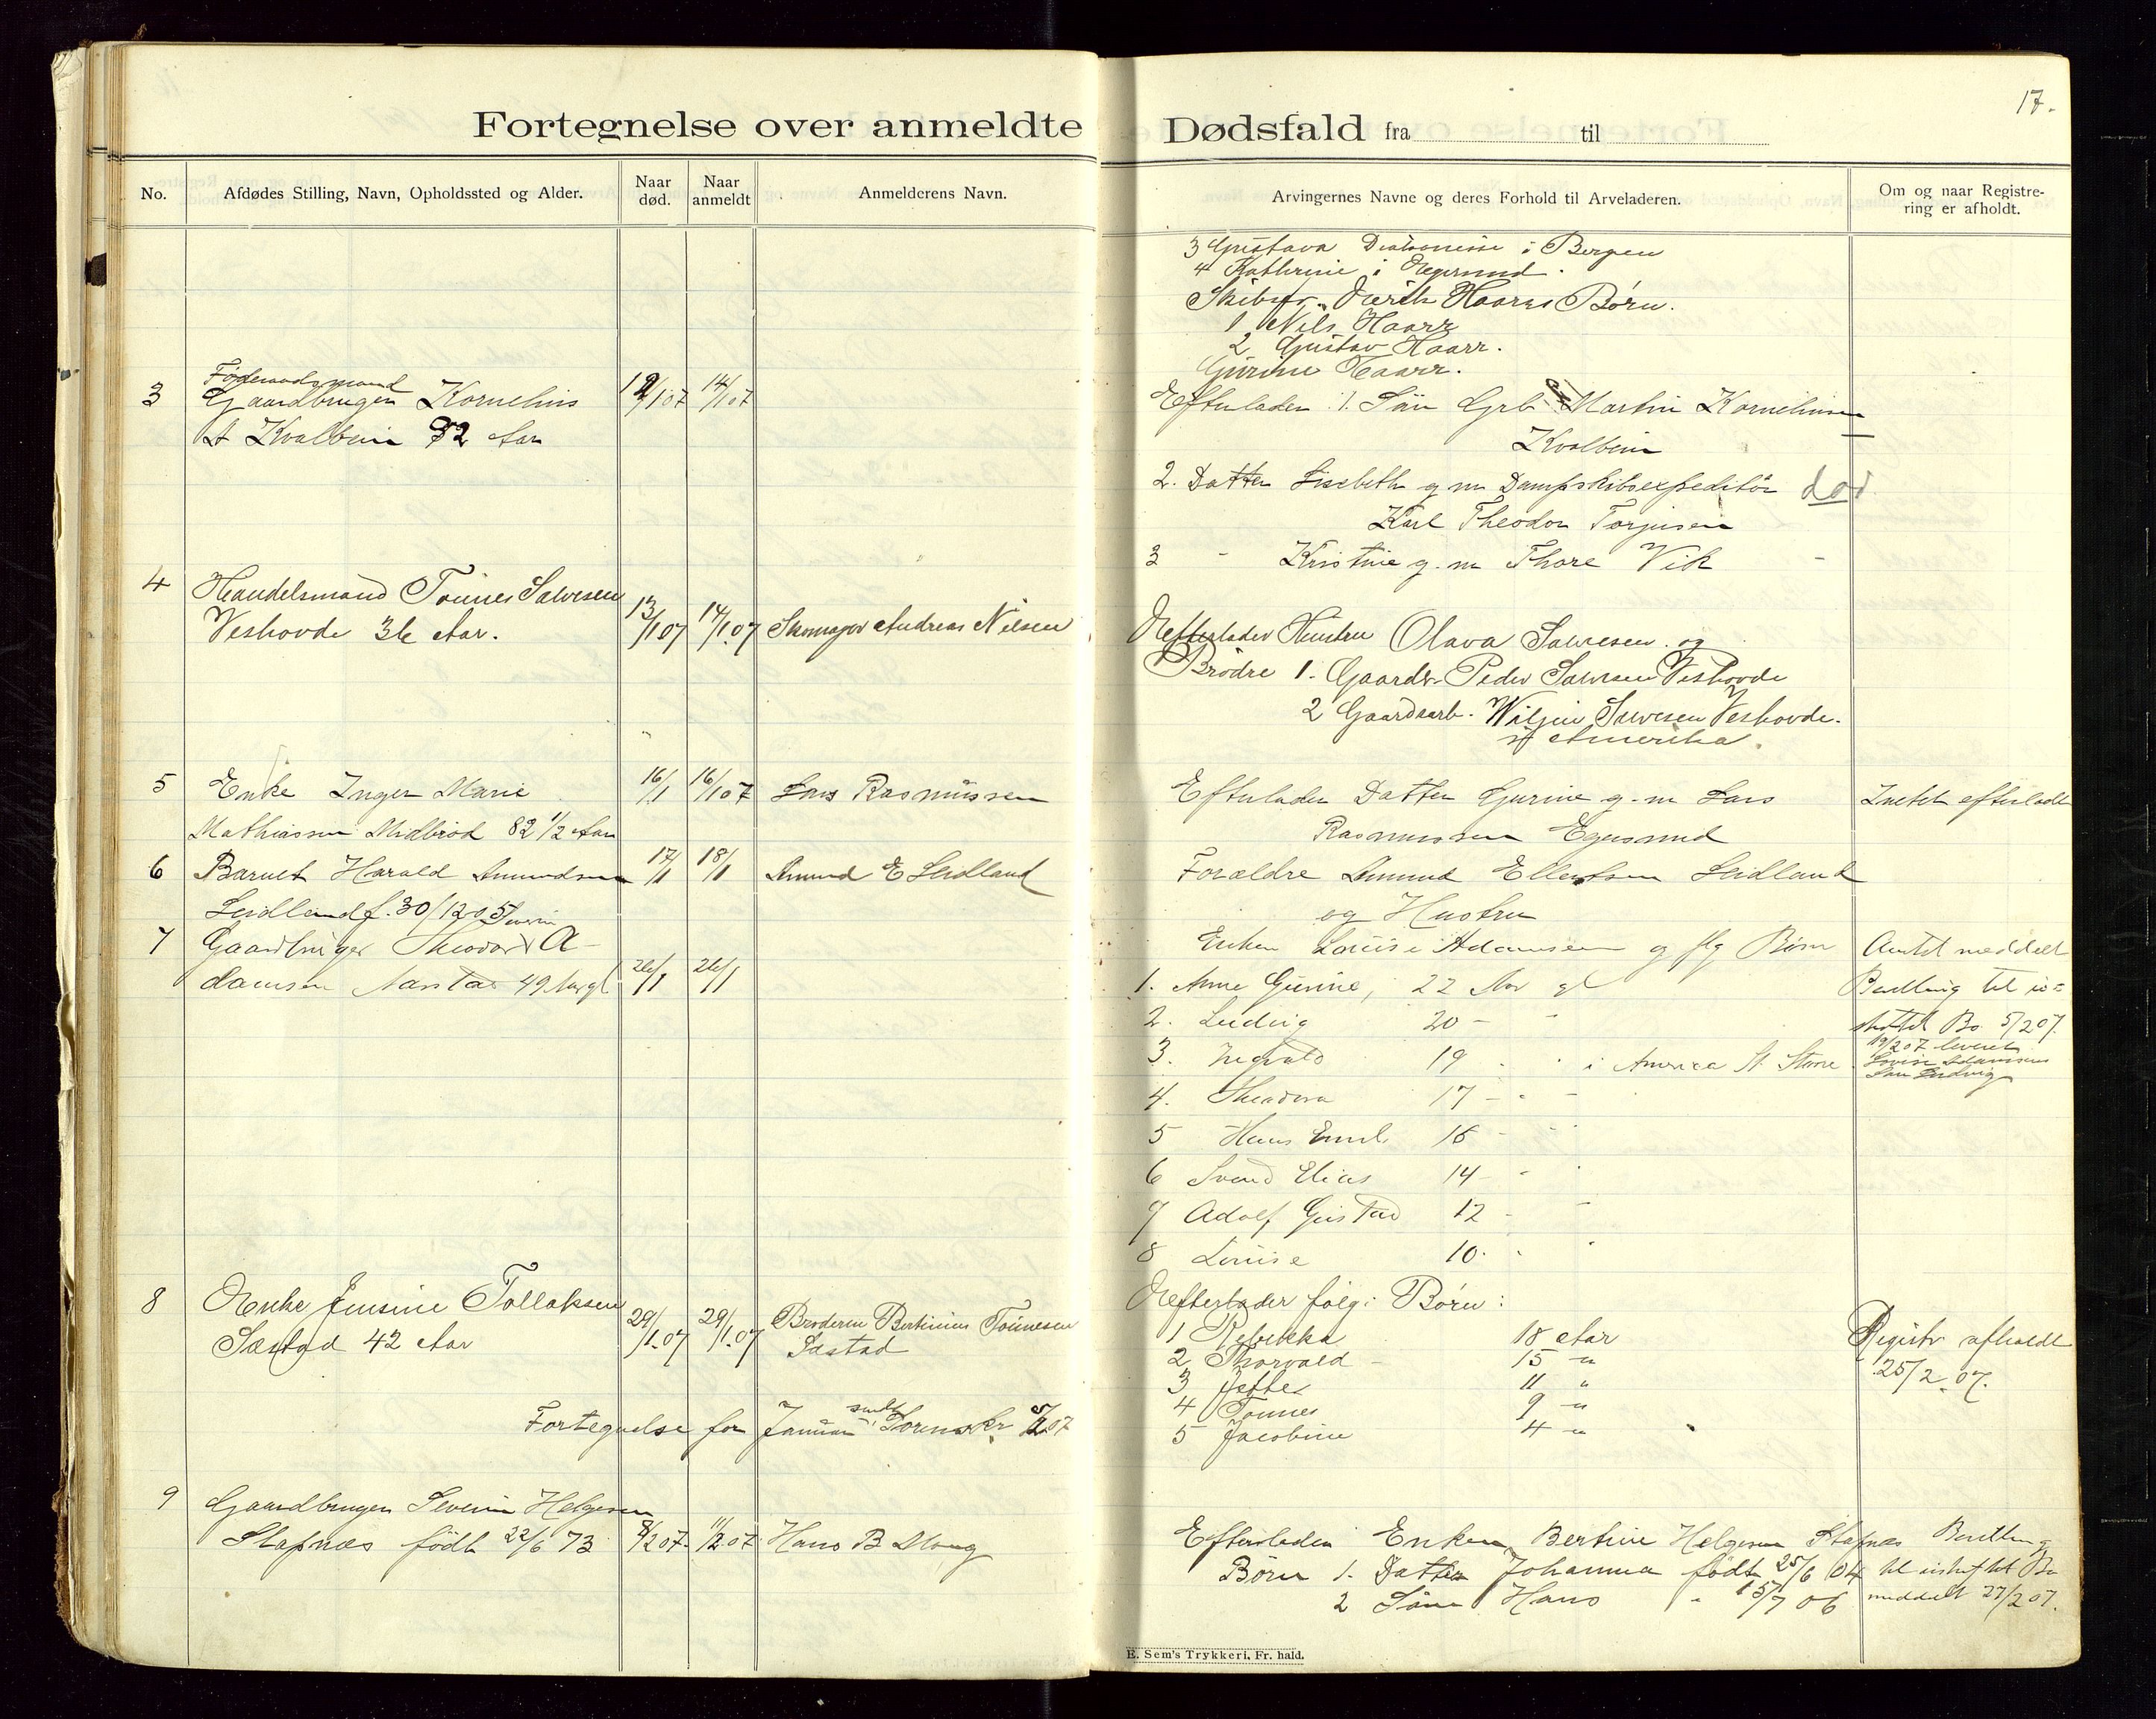 17.
Fortegnelse over anmeldte Dødsfald fra til
No.
Afdødes Stilling, Navn, Opholdssted og Alder.
Naar død.
Naar anmeldt
Anmelderens Navn.
Arvingernes Navne og deres Forhold til Arveladeren.
Om og naar Registre-
ring er afholdt.
3 Gustava Diakonisse i Bergen
4 Kathrine i Egersund.
Børn.
1 Nils Haarr
2 Gustav Haarr.
Gurine Haarr.
3 Föderaadsmand
Gaardbruger Kornelius 12/1 07 14/1 07
Kvalbein 82 Aar
Efterlader: 1. Sön Grb. Martin Korneliusen
Kvalbein
2. Datter Lisebeth g. m. Dampskibsexpeditör död
Karl Theodor Torjusen
3 - Kristine g. m Thore Vik -
4 Handelsmand Tönnes Salvesen
Veshovde 36 Aar. 13/1 07 14/1 07 Skomager Andreas Nilsen
Efterlader Hustru Olava Salvesen og
Brødre 1. Gaardbr. Peder Salvesen Veshovde
2 Gaardarb. Salvesen Veshovde.
Amerika.
5 Enke Inger Marie 16/1 16/1 07 Lars Rasmussen
Mathiassen Midbrød 82 1/2 Aar
Efterlader Datter Gurine g. m Lars Intet efterladt
Rasmussen Egersund
6 Barnet Harald Amundsen 17/1 18/1 Amund E Leidland
Leidland f. 30/12 05
Forældre Amund Ellertsen Leidland
og Hustru
7 Gaardbruger Theodor Severin A-
damsen 49 Aar gl 26/1 26/1
Enken Louise Adamsen og flg Börn
1. Anne Gurine, 22 Aar gl
2. Ludvig 20 - "
3. Ingvald 19 - " i America
4. Theodora 17 - " -
5 Hans Emil 16 - "
6 Svend Elias 14 - "
7 Adolf Gustav 12 - -
8 Louise 10 - "
Amtet meddelt
Bevilling til u-
skiftet Bo 5/2 07.
19/2 07 leveret
Lovise Adamsens
Sön Ludvig
8 Enke Jensine Tollaksen
Sæstad 42 Aar 29/1. 07 29/1. 07 Broderen Bertinius Tönnesen
Sæstad
Efterlader følg: Børn:
1 Rebekka 18 Aar
2 Thorvald - 15 "
3 11 "
4 Tönnes 9 "
5 Jacobine 4 "
Registr afholdt
25/2. 07.
Fortegnelse for Januar sendt Sorenskr. 5/2 07
9 Gaardbruger Severin Helgesen
Stapnæs född 22/6 73 8/2 07. 11/2 07. Hans B Mong
Efterlader Enken Bertine Helgesen Stapnæs
Börn 1. Datter Johanna född 25/6 04
2 Sön Hans " 15/7 06
Bevilling
til uskiftet Bo
meddelt 27/2 07.
E. Sem's Trykkeri, Fr. hald.